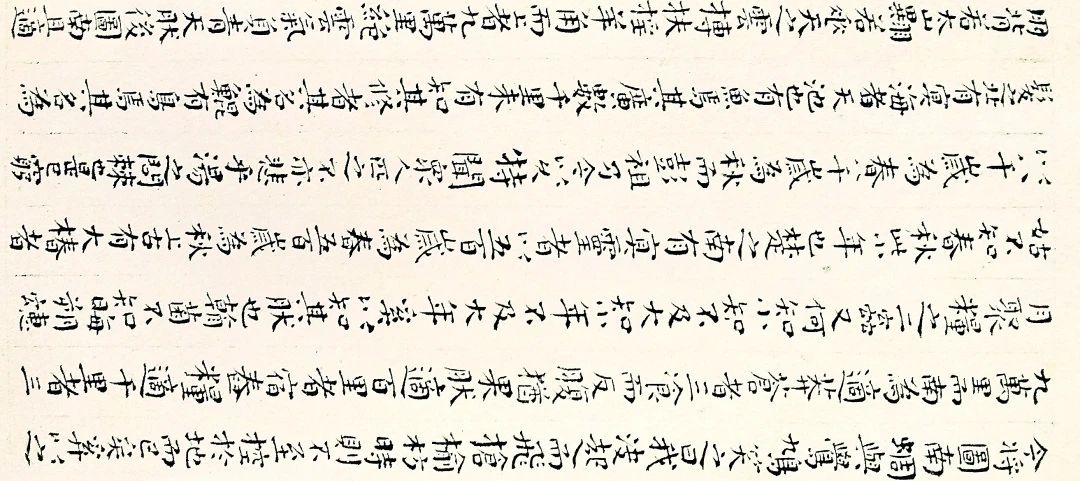 今将圖南蜩與鷽鳩笑之曰我決起而飛搶榆枋時則不至控於地而已矣奚以之
九萬里而南為適莽蒼者三飡而反腹猶果然適百里者宿舂糧適千里者三
月聚糧之二蟲又何知小知不及大知小年不及大年奚以知其然也朝菌不知晦朔蟪
蛄不知春秋此小年也楚之南有冥靈者以五百歲為春五百歲為秋上古有大椿者
以八千歲為春八千歲為秋而彭祖乃今以久特聞衆人匹之不亦悲乎湯之問棘也是已窮
髮之北有冥海者天池也有魚焉其廣數千里未有知其修者其名為鯤有鳥焉其名為
鵬背若太山翼若垂天之雲摶扶搖羊角而上者九萬里絕雲氣負青天然後圖南且適